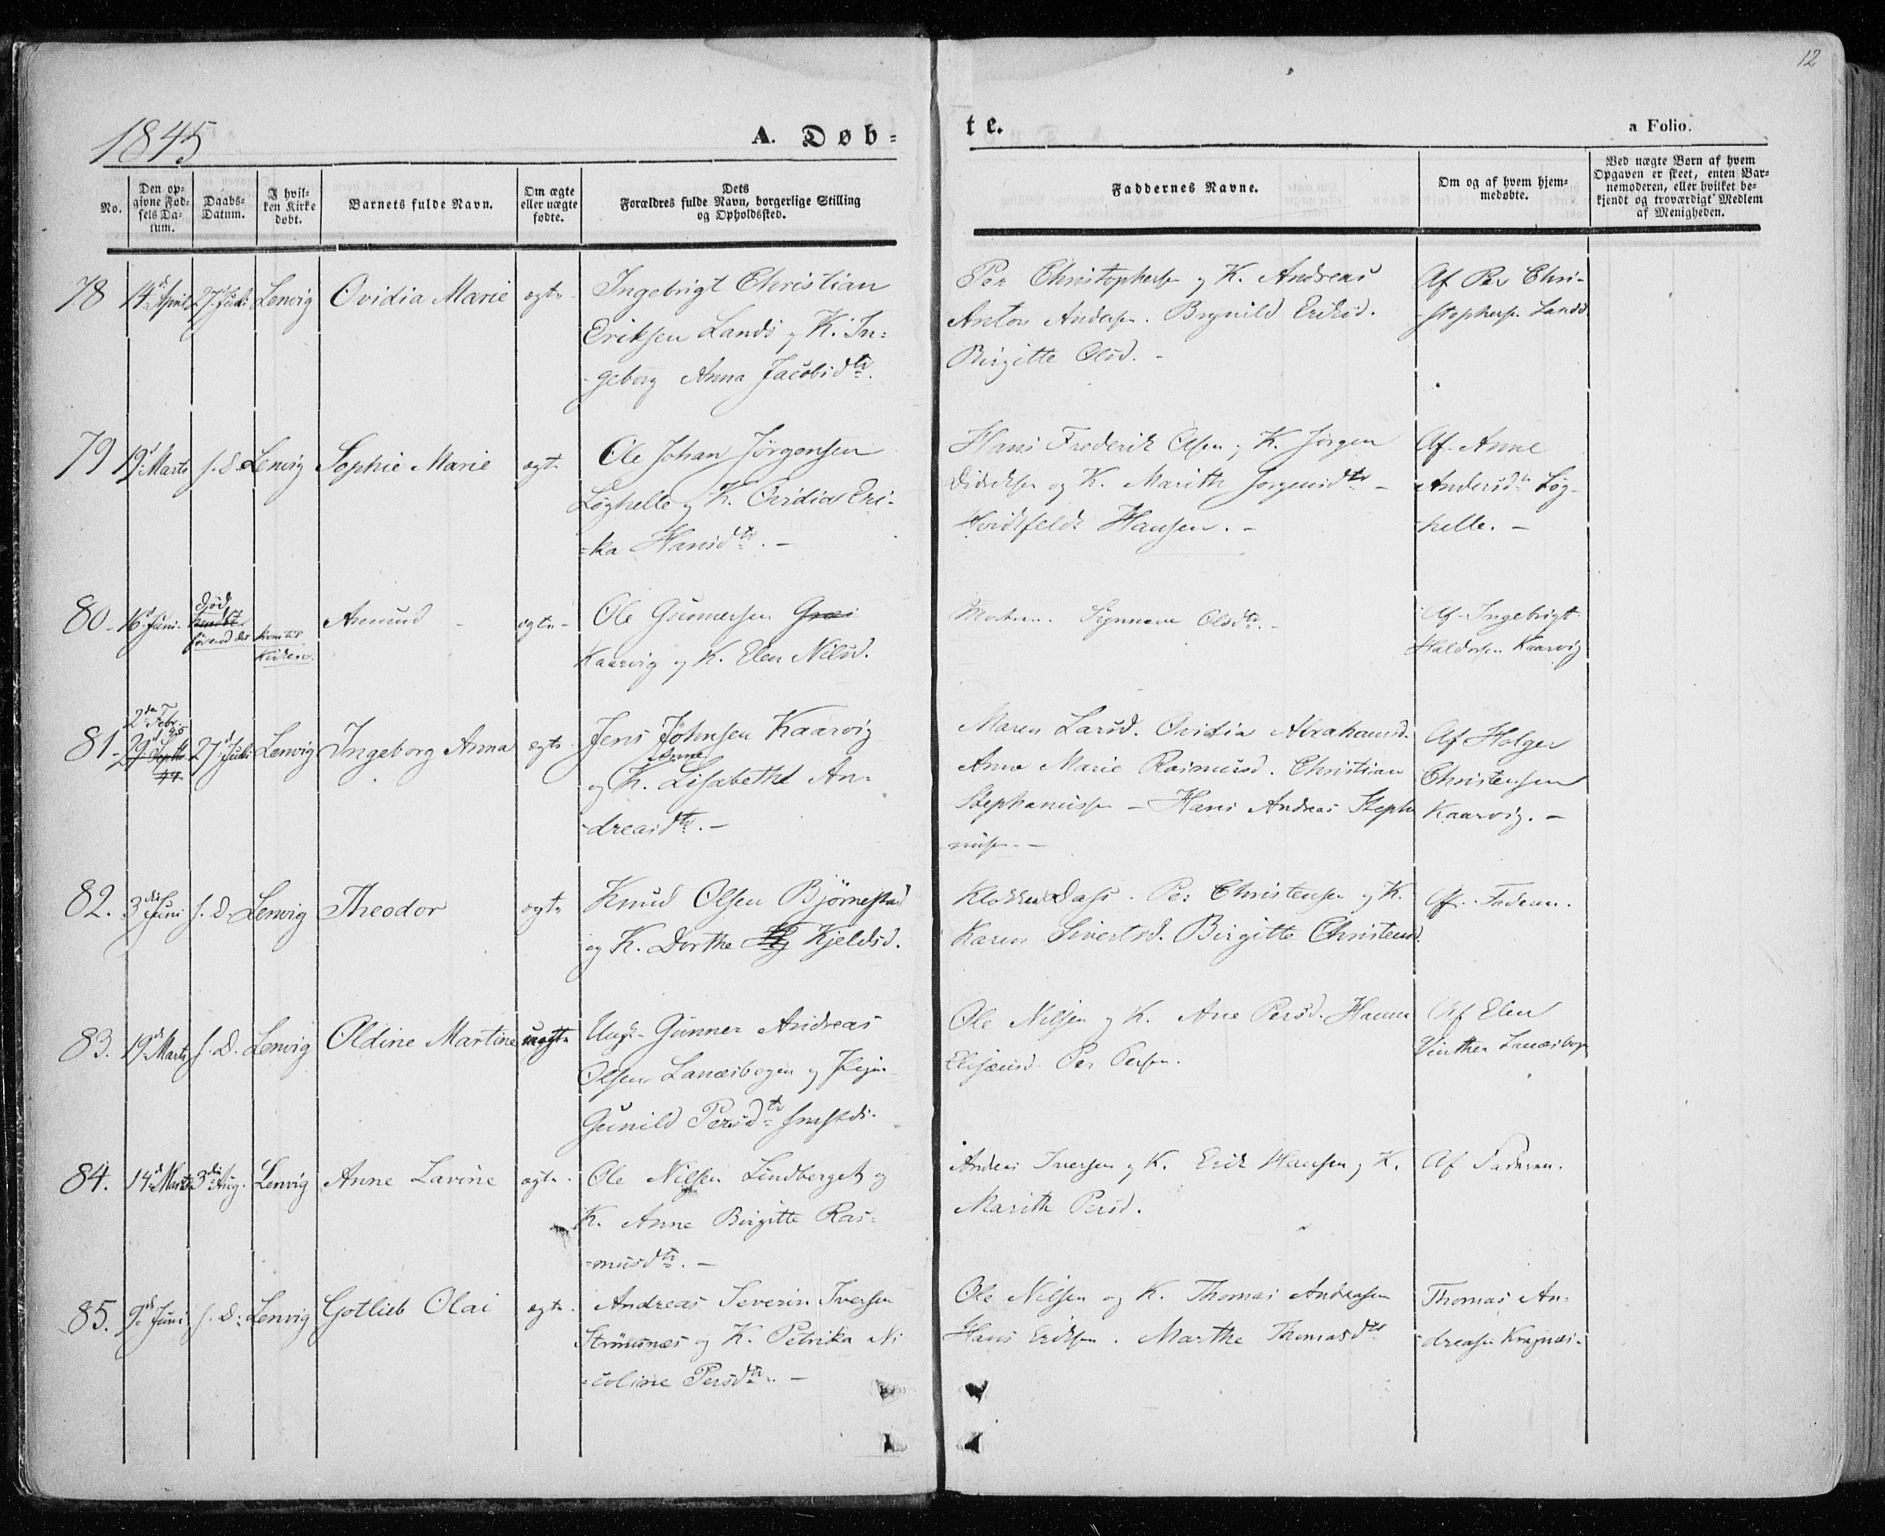 12
1845
A. Døb-
te.
a Folio.
No.
Den op-
givne Fød-
sels Da-
tum.
Daabs-
Datum.
I hvil-
ken Kirke
døbt.
Barnets fulde Navn.
Om ægte
eller uægte
fødte.
Dets
Forældres fulde Navn, borgerlige Stilling
og Opholdssted.
Faddernes Navne.
Om og af hvem hjem-
medøbte.
Ved uægte Børn af hvem
Opgaven er skeet, enten Bar-
nemoderen, eller hvilket be-
kjendt og troværdigt Medlem
af Menigheden.
78 14d April 27 Juli Lenvig Ovidia Marie ægte
Ingebrigt Christian
Eriksen Lands og K. In-
geborg Anna Jacobsdtr.
Per Christophersen og K. Andreas
Anton Andersen. Brynild Eriksd.
Birgitte Olsd. -
Af Per Chri-
stophersen Lands
79 19d Marts s. D. Lenvig Sophie Marie ægte
Ole Johan Jørgensen
Løghelle og K. Ovidia Eri-
ka Hansdtr. -
Hans Frederik Olsen og K. Jørgen
Didriksen og K. Marith Jørgensdtr -
Hvidtfeldt Hansen. -
Af Anne
Andersdtr Løg-
helle. -
80 16d Juni. død
førend det kom til
Kirken. Amund - ægte -
Ole Gunnersen
Kaarvig og K. Elen Nilsd.
Modren. Synnove Olsdtr. -
Af Ingebrigt
Haldorsen Kaarvig
81 2den Febr. 45
29d Septbr 44 27d Juli Lenvig Ingeborg Anna ægte
Jens Johnsen Kaarvig
Anne
og K. Lisabethe An-
dreasdtr. -
Maren Larsd. Ovidia Abrahamsd.
Anne Marie Rasmusd. Christian
Stephanussen - Hans Andreas Stepha
nusen. -
Af Holger
Christensen
Kaarvig. -
82. 3die Juni s. D. Lenvig Theodor ægte
Knud Olsen Bjørnestad
og K. Dorthe Kjeldsd.
Klokker Dass. Per Christensen og K.
Karen Sivertsd. Birgitte Christensd.
Af Faderen.
83. 19d Marts s. D. Lenvig Oldine Martine uægte
Ungk. Gunner Andreas
Olsen Lanæsbogen og Pigen
Gunild Persdtr smstds.
Ole Nilsen og K. Ane Persd. Hanna
Elisæusd. Per Persen.
Af Elen
Vinther Lanæsbogn
84. 14d Marts 3die Aug. Lenvig Anne Lavine ægte
Ole Nilsen Lindberget og
K. Anne Birgitte Ras-
musdtr. -
Anders Iversen og K. Erik Hansen og K.
Marith Persd.
Af Faderen.
85. 9de Juni s. D. Lenvig Gotlieb Olai ægte
Andreas Severin Iversen
Strømsnes og K. Petrika Ni-
coline Persdtr. -
Ole Nilsen og K. Thomas Andreasen
Hans Eriksen. Marthe Thomasdtr
Thomas An-
dreasen Kragnæs -